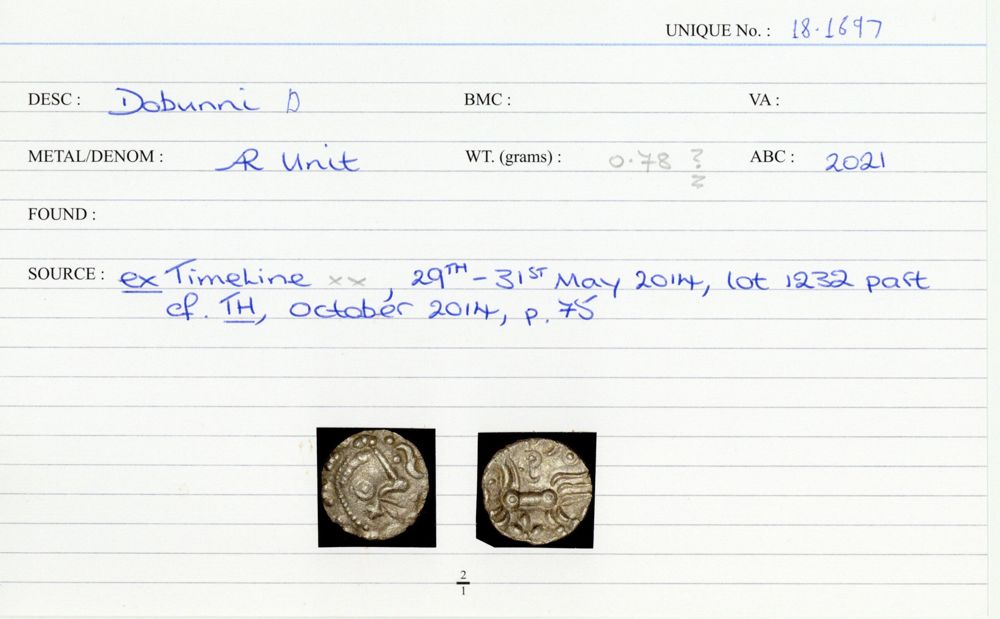 UNIQUE No. : 18.1697
DESC : Dobunni D BMC : VA :
METAL/DENOM : AR Unit WT. (grams) : 0.78 ? ABC : 2021
FOUND :
SOURCE : ex Timeline xx, 29TH - 31ST May 2014, lot 1232 part
cf. TH, October 2014, p. 75
2
1